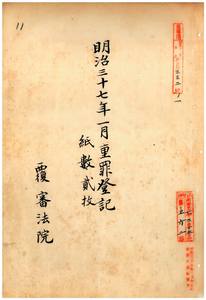 11
明治三十七年一月重罪登記
紙數貳枚
覆審法院